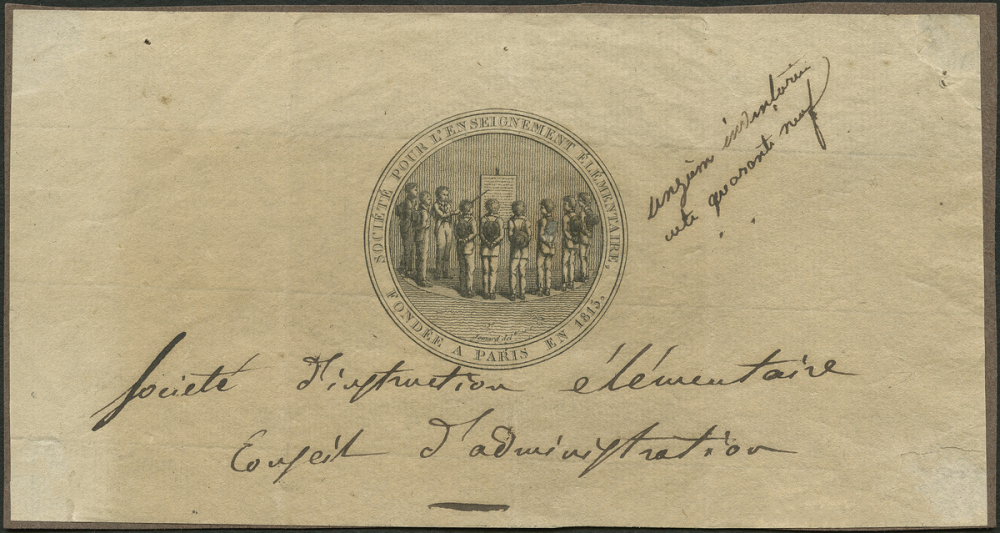 SOCIÉTÉ POUR L'ENSEIGNEMENT ÉLÉMENTAIRE,
FONDÉE A PARIS EN 1815.
quarante neuf
Société d'instruction élémentaire
Conseil d'administration